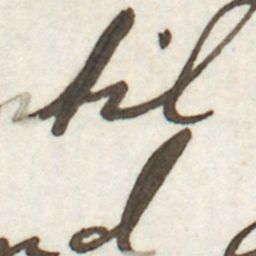 til
nd